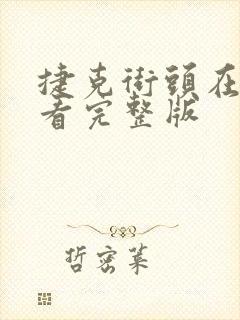 捷克街頭在
看完整版
哲密菓